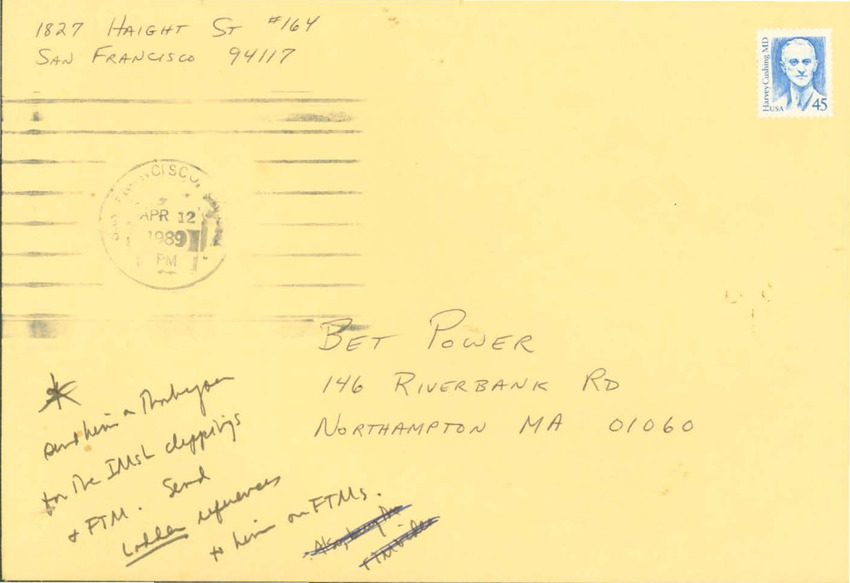 1827 HAIGHT ST #164
SAN FRANCISCO 94117
Harvey Cushing MD
USA 45
SAN FRANCISCO,
APR 12
1989
PM
BET POWER
146 RIVERBANK RD
NORTHAMPTON MA 01060
* Send him a Thankyou
for the IMsL clippings
+ FTM. Send
Ladder references
to him on FTMs.